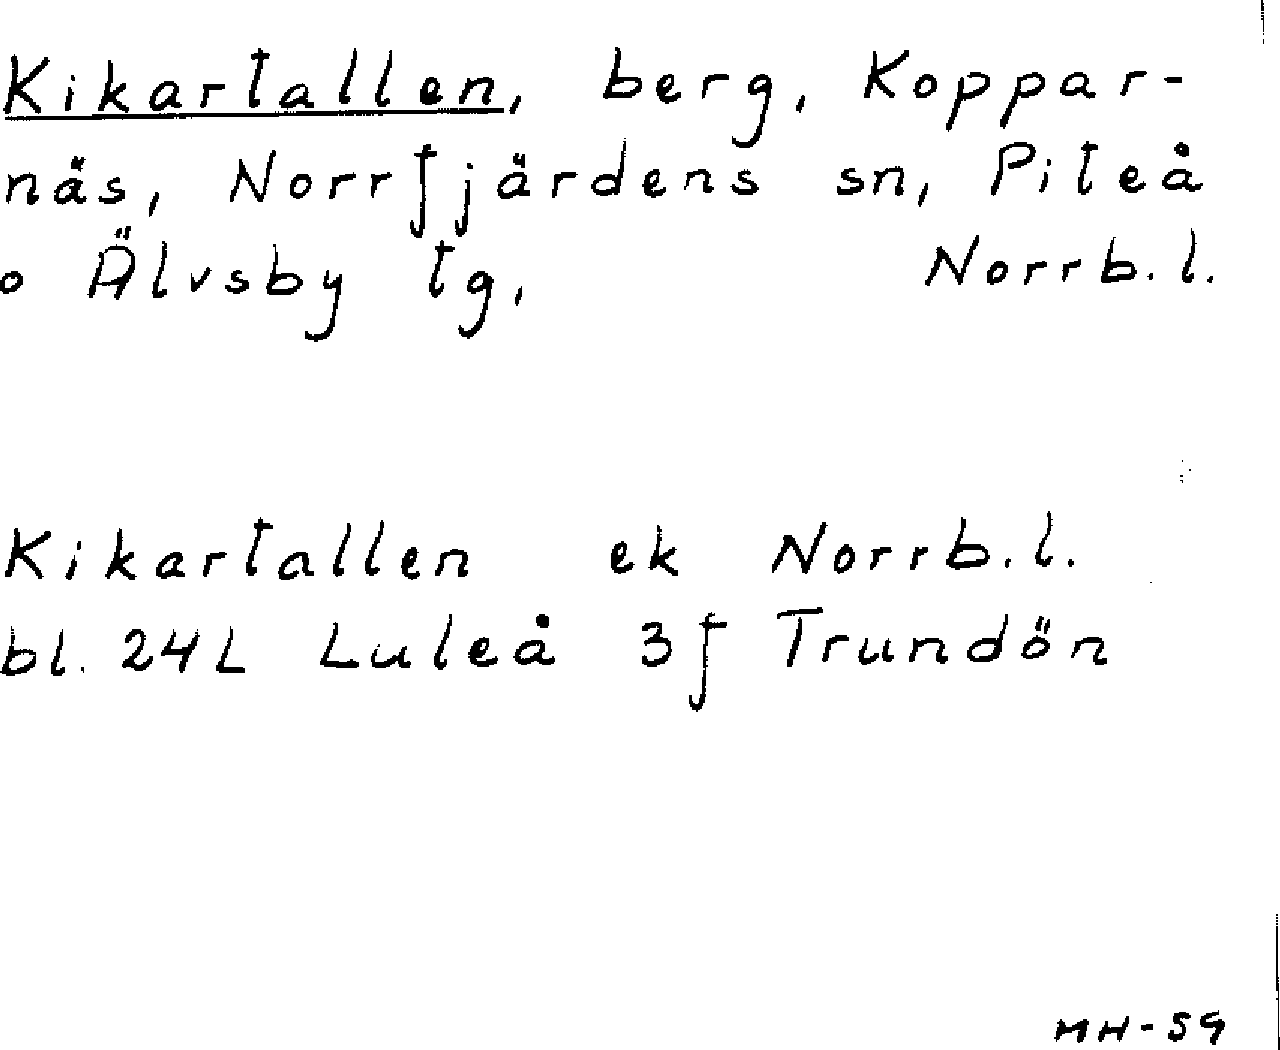 Kikartallen, berg, Koppar-
näs, Norrfjärdens sn, Piteå
o Älvsby tg, Norrb. l.
Kikartallen ek Norrb. l.
bl. 24L Luleå 3f Trundön
MH-59